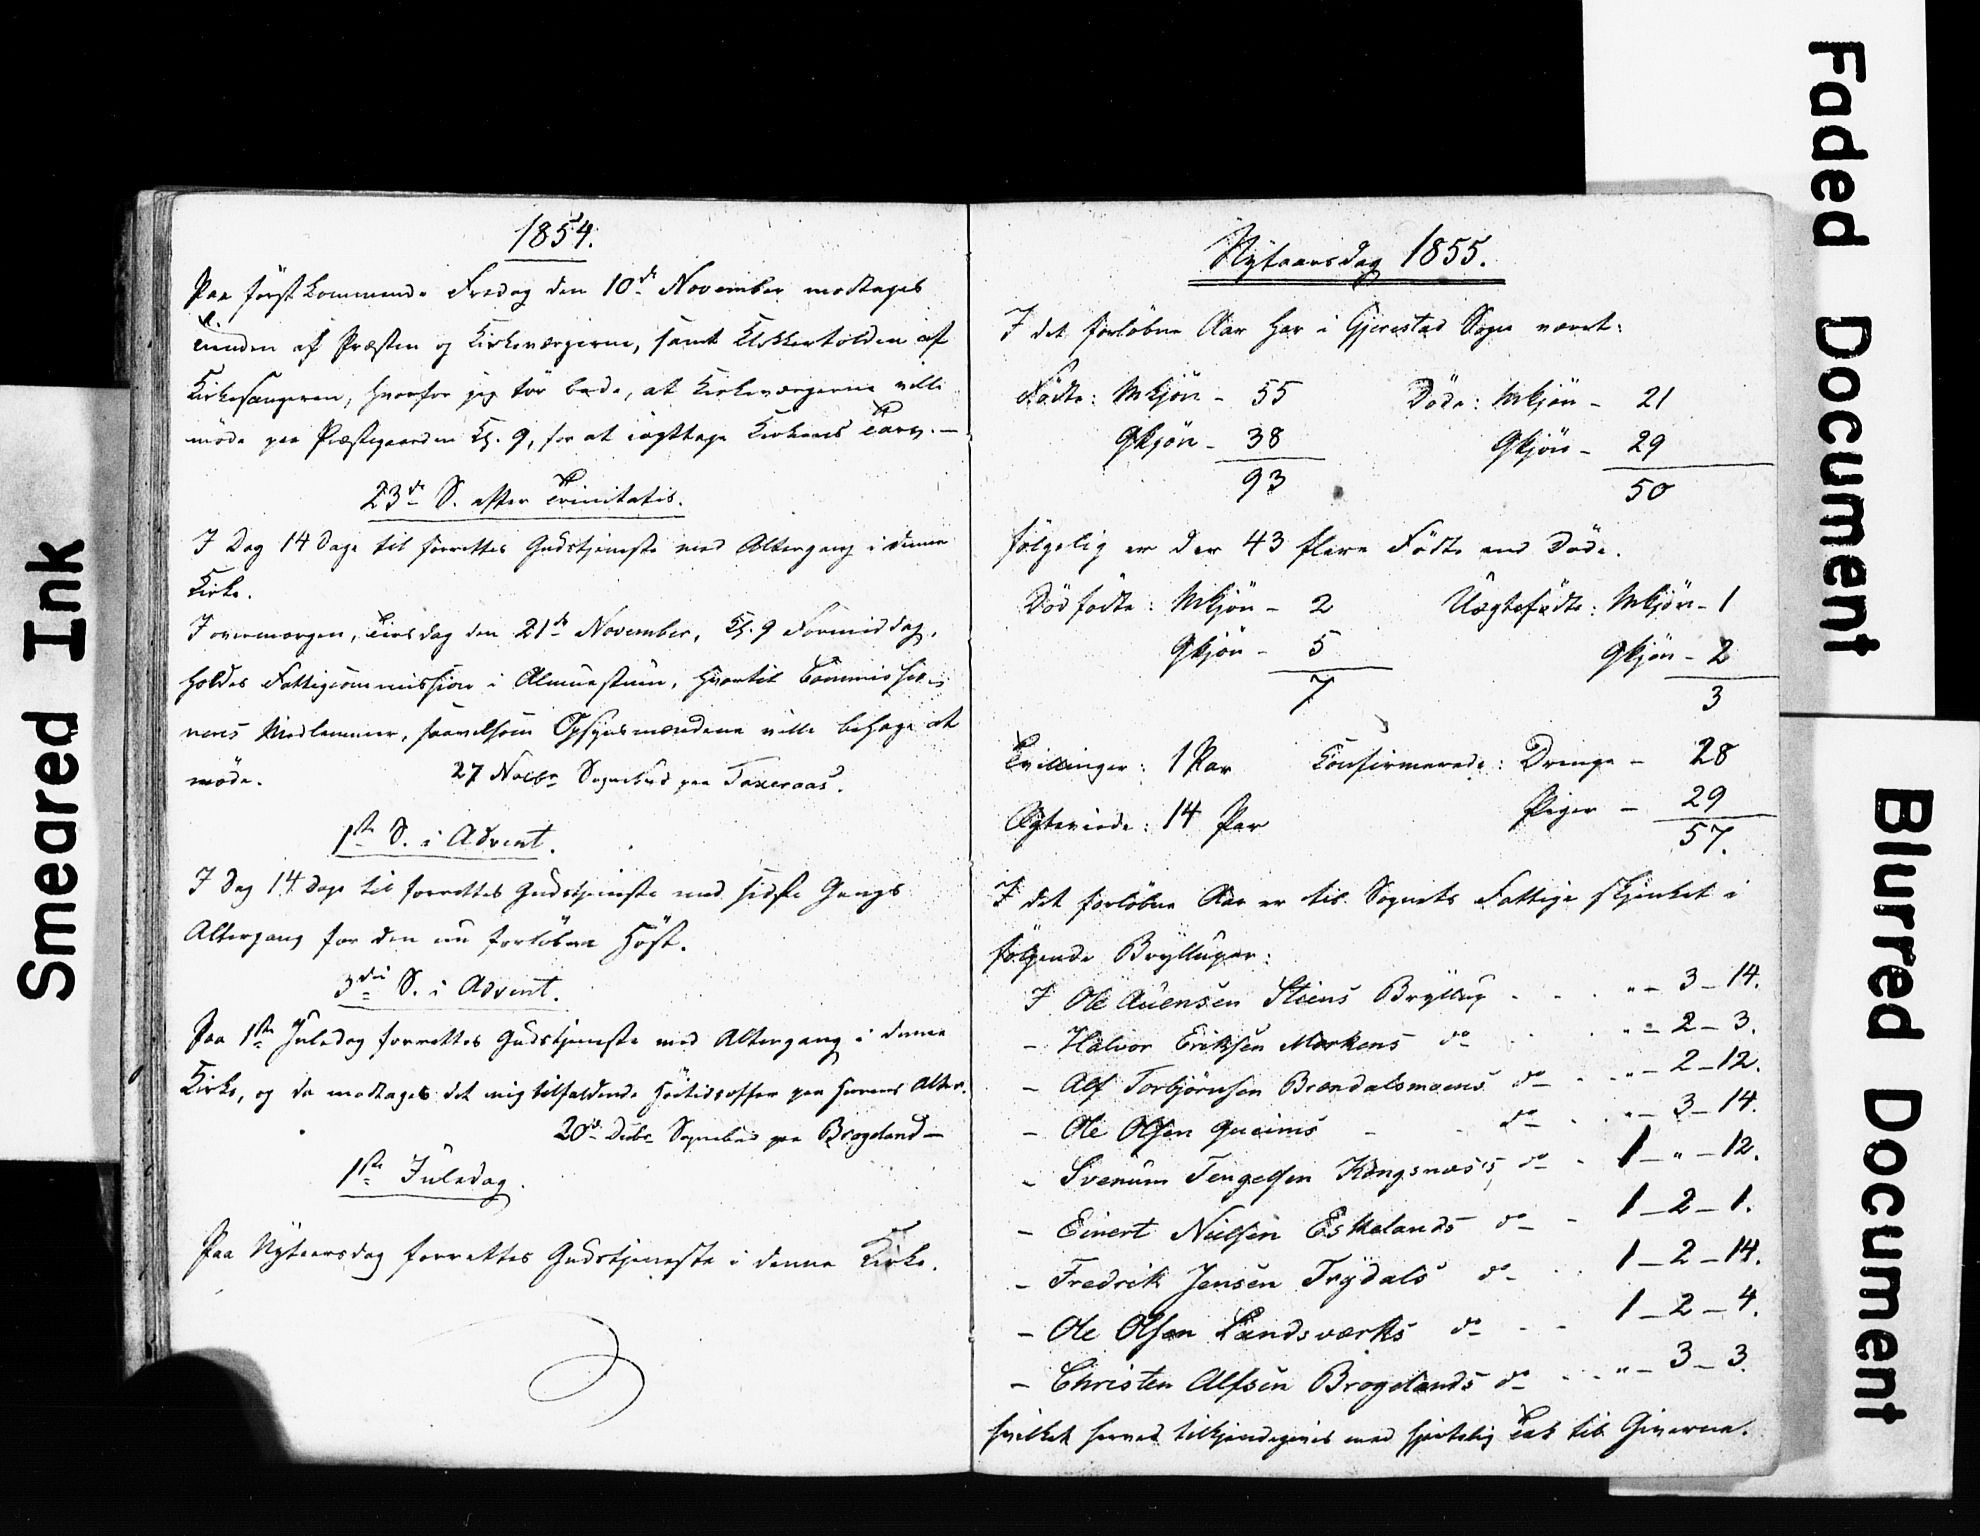 1854.
Paa förstkommende Fredag den 10de November modtages
Tienden af Præsten og Kirkeværgerne, samt Klokkertolden af
Kirkesangeren, hvorfor jeg tör bede, at Kirkeværgerne ville
möde paa Præstegaarden Kl. 9, for at iagttage Kirkens Tarv. —
23de S. efter Trinitatis.
I Dag 14 Dage til forrettes Gudstjeneste med Altergang i denne
Kirke.
I overmorgen, Tirsdag den 21de November, Kl. 9 Formiddag,
holdes Fattigcommission i Almuestuen, hvortil Commissio-
nens Medlemmer, saavelsom Opsynsmændene ville behage at
möde. 27 Novbr Sognebud paa Taxeraas.
1ste S. i Advent.
I Dag 14 Dage til forrettes Gudstjeneste med sidste Gangs
Altergang for den nu forlöbne Höst.
3die S. i Advent.
Paa 1ste Juledag forrettes Gudstjeneste med Altergang i denne
Kirke, og da modtages det mig tilfaldende Höitidsoffer paa Herrens Alter.
20de Decbr Sognebud paa Brogeland —
1ste Juledag.
Paa Nytaarsdag forrettes Gudstjeneste i denne Kirke.
Nytaarsdag 1855.
I det forlöbne Aar har i Gjerestad Sogn været:
Födte: Mkjön - 55 Döde: Mkjön - 21
Qkjön - 38 Qkjön - 29
93 50
fölgelig er der 43 flere Födte end Döde.
Dödfödte: Mkjön - 2 Uægtefödte: Mkjön - 1
Qkjön - 5 Qkjön - 2
7 3
Tvillinger: 1 Par Confirmerede: Drenge - 28
Ægteviede: 14 Par Piger - 29
57.
I det forlöbne Aar er til Sognets Fattige skjenket i
fölgende Brylluper:
I Ole Auensen Stiens Bryllup - „ - 3 - 14.
- Halvor Eriksen Morkens do „ - 2 - 3.
- Alf Torbjörnsen Brændalsmoens do - „ - 2 - 12.
- Ole Olsen Queims - do „ - 3 - 14.
- Svenum Tengelsen Kongsnæs's do - 1 - „ - 12.
- Einert Nielsen Eskelands do - 1 - 2 - 1.
- Fredrik Jensen Trydals do - 1 - 2 - 14.
- Ole Olsen Landsværks do - - 1 - 2 - 4.
- Christen Alfsen Brogelands do - „ - 3 - 3.
hvilket herved tilkjendegives med hjertelig Tak til Giverne.
Smeared Ink
Faded Document
Blurred Document